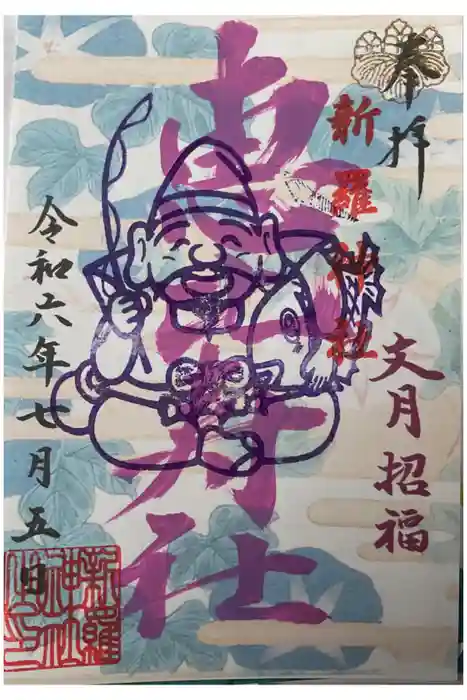 奉拝
新羅神社
文月招福
恵比寿社
令和六年七月五日
新羅
神社
之印